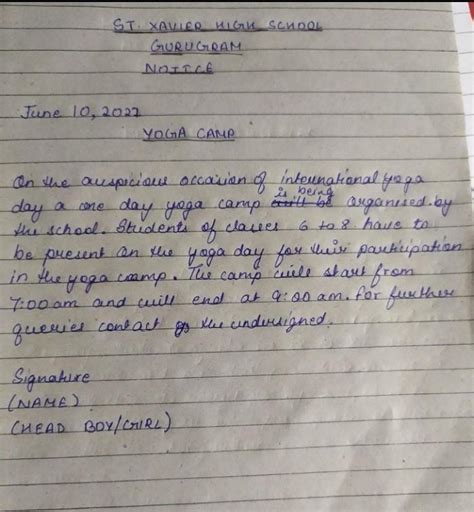 ST. XAVIER HIGH SCHOOL
GURUGRAM
NOTICE
June 10, 2022
YOGA CAMP
On the auspicious occasion of international yoga
day a one day yoga camp is being organised by
the school. Students of classes 6 to 8 have to
be present on the yoga day for their participation
in the yoga camp. The camp will start from
7:00 am and will end at 9:00 am. For further
queries contact the undersigned.
Signature
(NAME)
(HEAD BOY/GIRL)